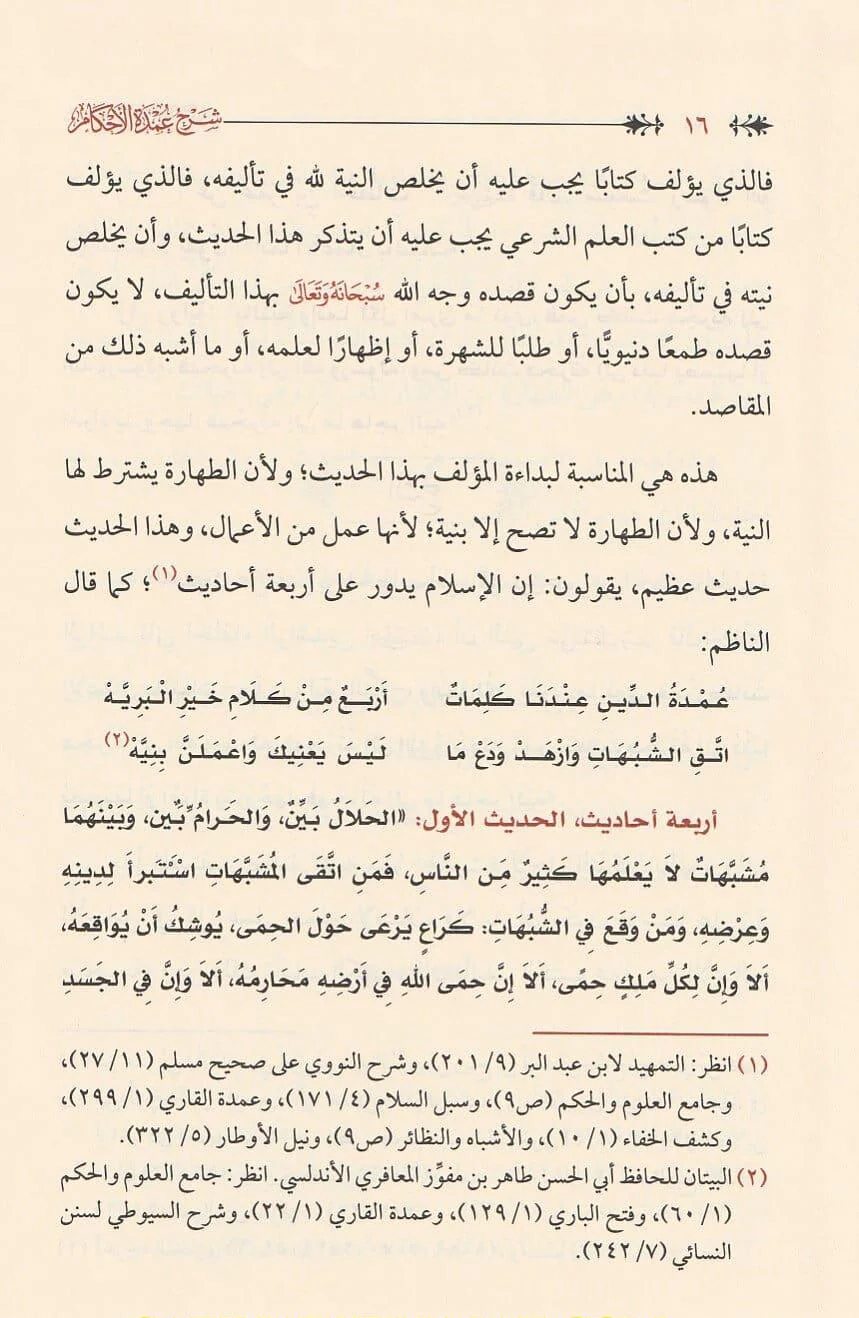 ١٦ شرح عمدة الأحكام
فالذي يؤلف كتابًا يجب عليه أن يخلص النية لله في تأليفه، فالذي يؤلف
كتابًا من كتب العلم الشرعي يجب عليه أن يتذكر هذا الحديث، وأن يخلص
نيته في تأليفه، بأن يكون قصده وجه الله سُبْحَانَهُ وَتَعَالَىٰ بهذا التأليف، لا يكون
قصده طمعًا دنيويًّا، أو طلبًا للشهرة، أو إظهارًا لعلمه، أو ما أشبه ذلك من
المقاصد.
هذه هي المناسبة لبداءة المؤلف بهذا الحديث؛ ولأن الطهارة يشترط لها
النية، ولأن الطهارة لا تصح إلا بنية؛ لأنها عمل من الأعمال، وهذا الحديث
حديث عظيم، يقولون: إن الإسلام يدور على أربعة أحاديث(١)؛ كما قال
الناظم:
عُمْدَةُ الدِّينِ عِنْدَنَا كَلِمَاتٌ أَرْبَعٌ مِنْ كَلَامِ خَيْرِ الْبَرِيَّهْ
اتَّقِ الشُّبُهَاتِ وَازْهَدْ وَدَعْ مَا لَيْسَ يَعْنِيكَ وَاعْمَلَنَّ بِنِيَّهْ(٢)
أربعة أحاديث، الحديث الأول: «الحَلَالُ بَيِّنٌ، وَالحَرامُ بَيِّن، وَبَيْنَهُمَا
مُشَبَّهَاتٌ لاَ يَعْلَمُهَا كَثِيرٌ مِّنَ النَّاسِ، فَمَنِ اتَّقَى المُشَبَّهَاتِ اسْتَبرأَ لِدِينِهِ
وَعِرْضِهِ، وَمَنْ وَقَعَ فِي الشُّبُهَاتِ: كَرَاعٍ يَرْعَى حَوْلَ الحِمَى، يُوشِكُ أَنْ يُوَاقِعَهُ،
أَلاَ وَإِنَّ لِكُلِّ مَلِكٍ حِمًى، أَلاَ إِنَّ حِمَى اللهِ فِي أَرْضِهِ مَحَارِمُهُ، أَلاَ وَإِنَّ فِي الجَسَدِ
(١) انظر: التمهيد لابن عبد البر (٩/ ٢٠١)، وشرح النووي على صحيح مسلم (١١/ ٢٧)،
وجامع العلوم والحكم (ص٩)، وسبل السلام (٤/ ١٧١)، وعمدة القاري (١/ ٢٩٩)،
وكشف الخفاء (١/ ١٠)، والأشباه والنظائر (ص٩)، ونيل الأوطار (٥/ ٣٢٢).
(٢) البيتان للحافظ أبي الحسن طاهر بن مفوِّز المعافري الأندلسي. انظر: جامع العلوم والحكم
(١/ ٦٠)، وفتح الباري (١/ ١٢٩)، وعمدة القاري (١/ ٢٢)، وشرح السيوطي لسنن
النسائي (٧/ ٢٤٢).